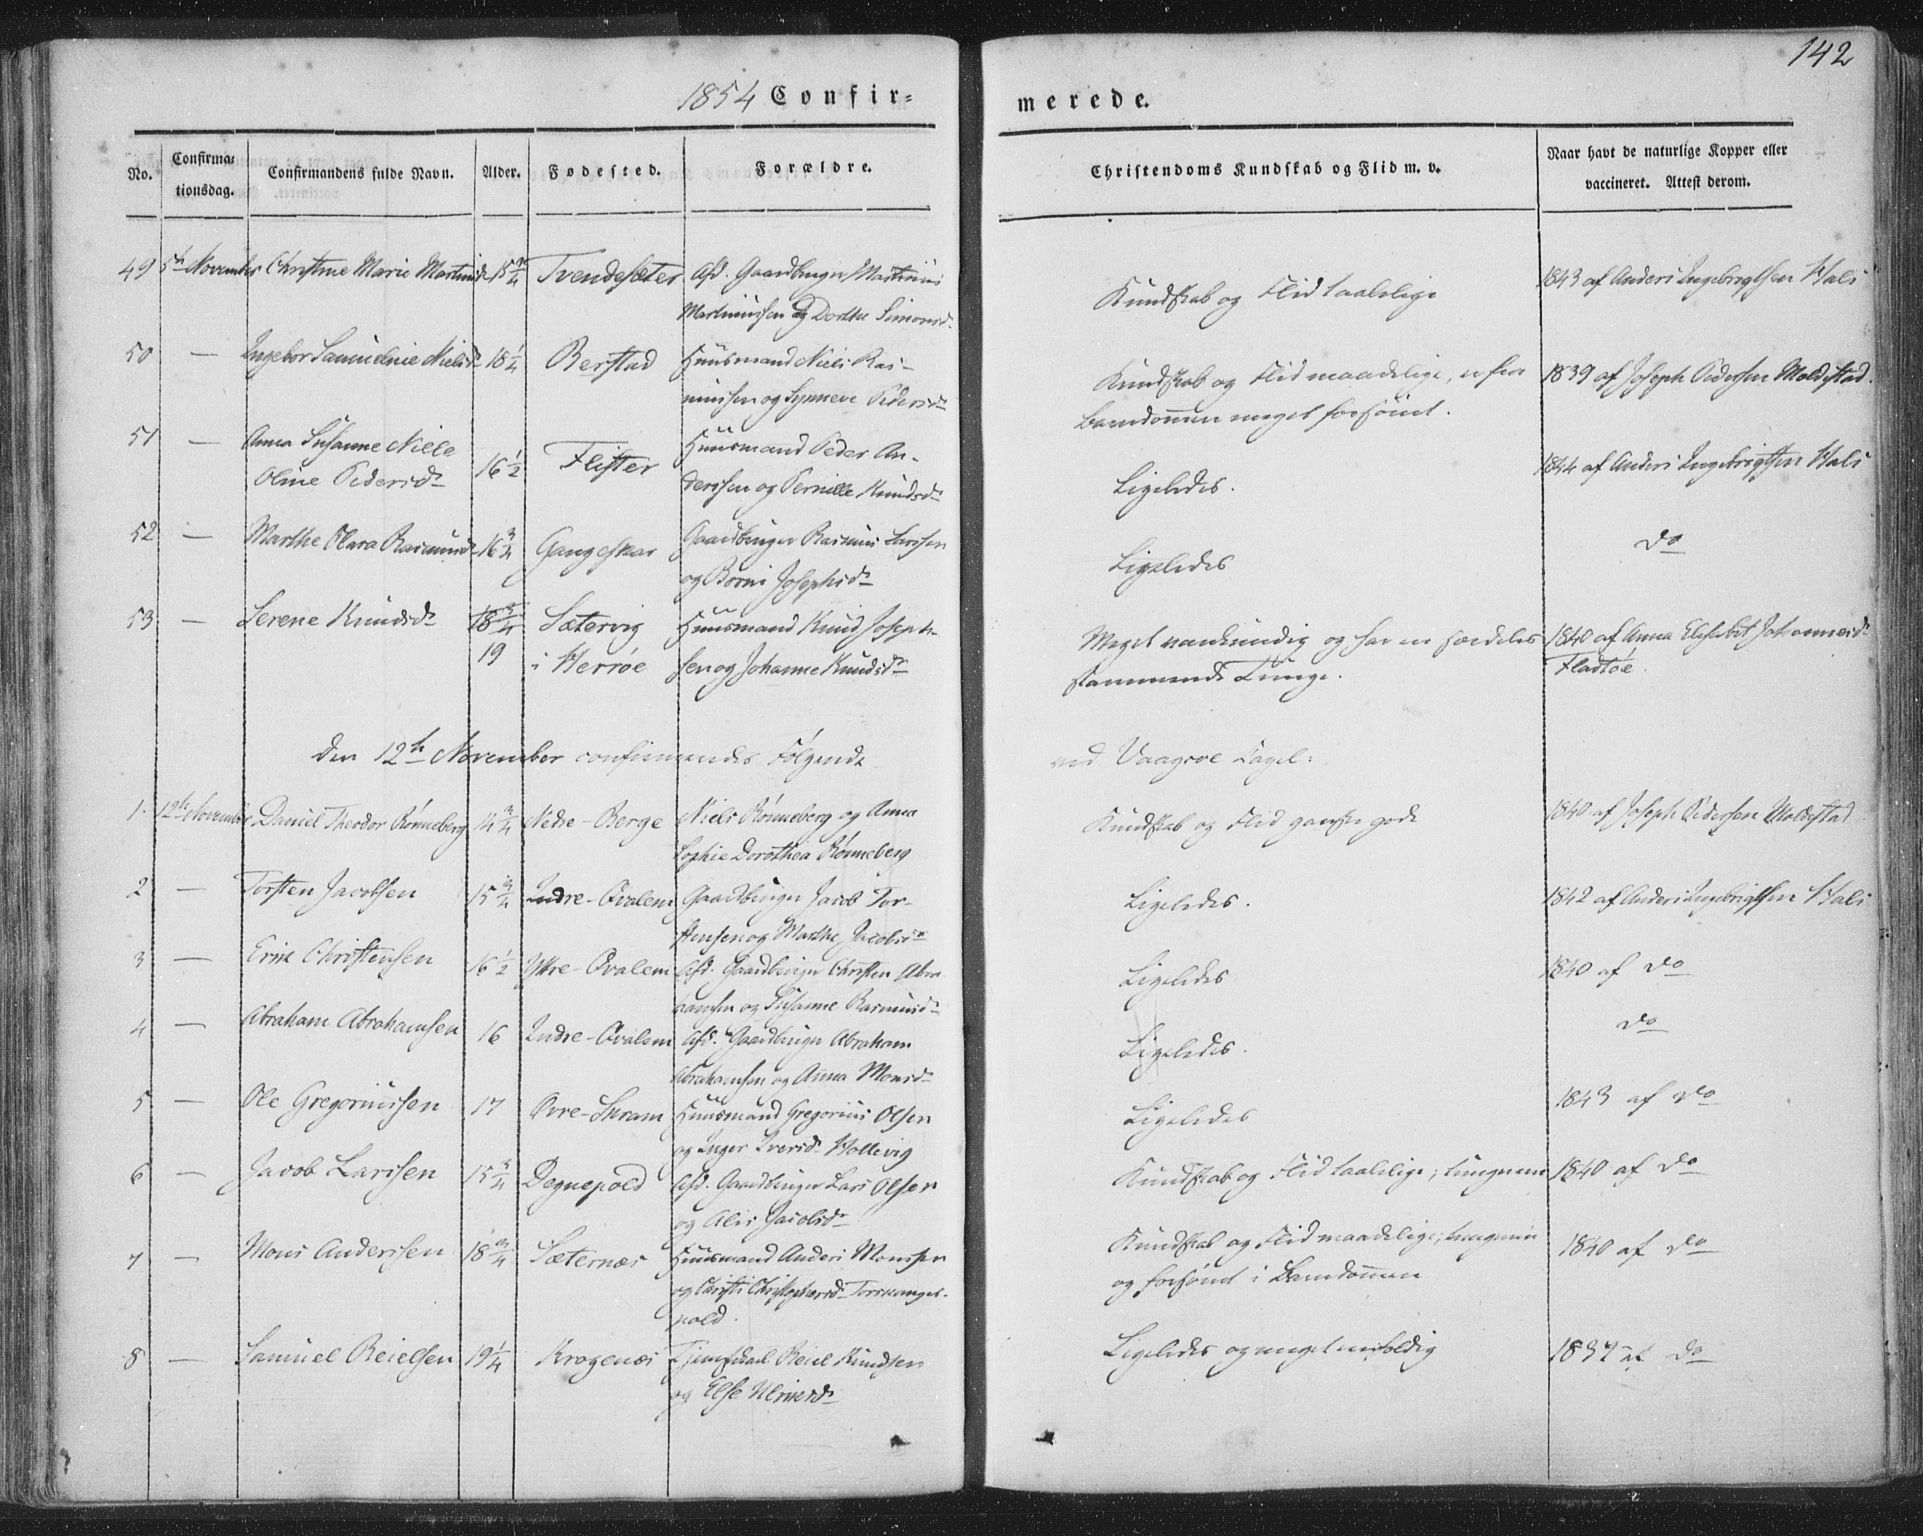 142
1854 Confir-
merede.
No.
Confirma-
tionsdag.
Confirmandens fulde Navn.
Alder.
Fødested.
Forældre.
Christendoms Kundskab og Flid m. v.
Naar havt de naturlige Kopper eller
vaccineret. Attest derom.
49 5te November Christine Marie Martinusdr 15 3/4 Tvendesæter Afd. Gaardbruger Martinus
Martinussen og Dorthe Simonsdr
Kundskab og Flid taalelige
1843 af Anders Ingebrigtsen Hals
50 — Ingebor Samueline Nielsdr 18 1/4 Berstad Huusmand Niels Ras-
mussen og Synneve Pedersdr
Kundskab og Flid maadelige, er fra
Barndommen meget forsømt.
1839 af Joseph Pedersen Moldestad.
51 — Anna Susanne Nille
Oline Pedersdr 16 1/2 Flister Huusmand Peder An-
derssen og Pernille Knudsdr
Ligeledes.
1844 af Anders Ingebrigtsen Hals
52 — Marthe Olava Rasmusdr 16 3/4 Gangeskar Gaardbruger Rasmus Larssen
og Børni Josephsdr
Ligeledes
do
53 — Serene Knudsdr 18 3/4 Sætervig Huusmand Knud Joseph-
19 i Herrøe sen og Johanne Knudsdr
Meget vankundig og har en særdeles
stammende Tunge.
1840 af Anna Elisabet Johannesdr
Fladtøe.
Den 12te November confirmeredes Følgende
ved Vaagsøe Capel:
1. 12te November Daniel Theodor Rønneberg 14 3/4 Nedre-Berge Niels Rønneberg og Anna
Sophie Dorothea Rønneberg
Kundskab og Flid ganske gode
1840 af Joseph Pedersen Moldestad
2 — Torsten Jacobsen 15 3/4 Indre-Qvalem Gaardbruger Jacob Tor-
stensen og Marthe Jacobsdr
Ligeledes.
1842 af Anders Ingebrigtsen Hals
3 — Erik Christensen 16 1/2 Ytre-Qvalem Afd. Gaardbruger Christen Abra-
hamsen og Susanne Rasmusdr
Ligeledes
1840 af do
4 — Abraham Abrahamsen 16 Indre-Qvalem Afd. Gaardbruger Abraham
Abrahamsen og Anna Monsdr
Ligeledes.
do
5 — Ole Gregoriussen 17 Øvre-Skram Huusmand Gregorius Olsen
og Inger Iversdr Holleviig
Ligeledes
1843 af do
6 — Jacob Larssen 15 3/4 Degnepold Afd. Gaardbruger Lars Olsen
og Alis Jacobsdr
Kundskab og Flid taalelige; tungnem
1840 af do
7 — Mons Anderssen 18 3/4 Sæternæs Huusmand Anders Monssen
og Christi Christophersdr Torskanger-
pold.
Kundskab og Flid maadelige; tungnem
og forsømt i Barndommen
1840 af do
8 — Samuel Reielsen 19 1/4 Kragenæs Reiel Knudsen
og Else
Ligeledes og meget
1837 af do